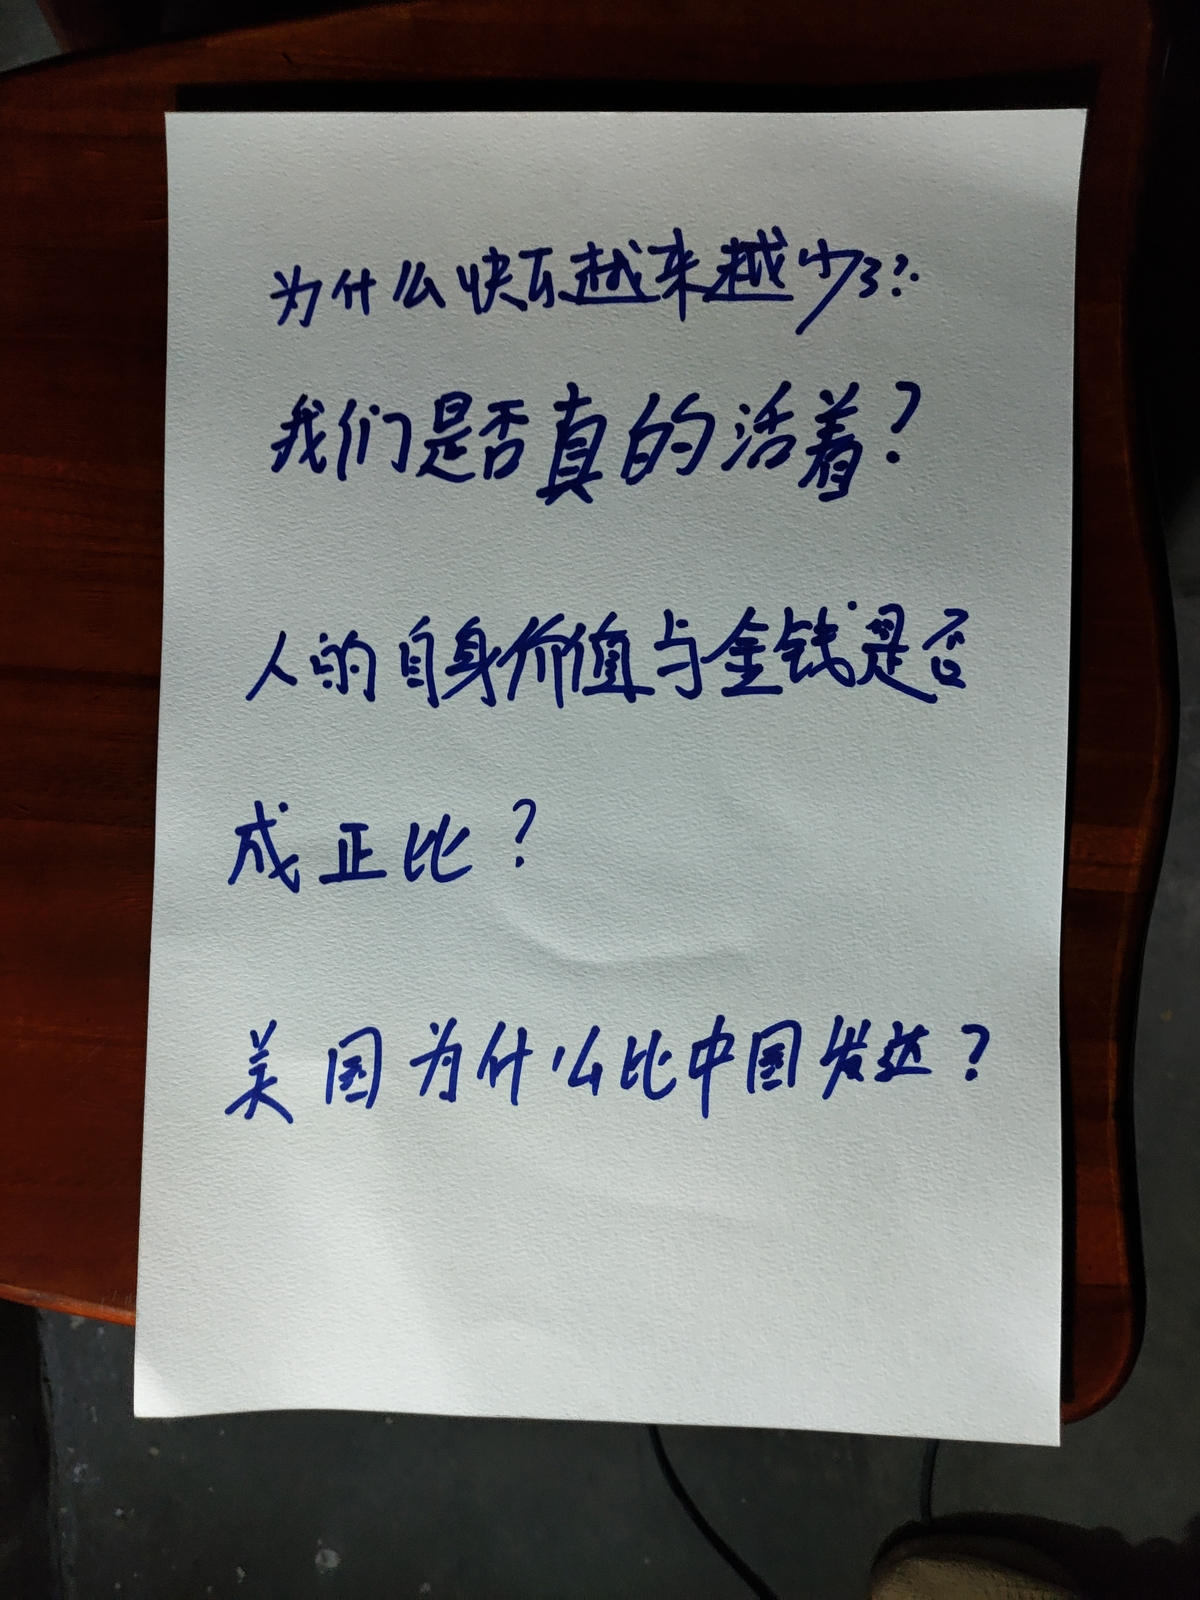 为什么快乐越来越少了?
我们是否真的活着?
人的自身价值与金钱是否
成正比?
美国为什么比中国发达?